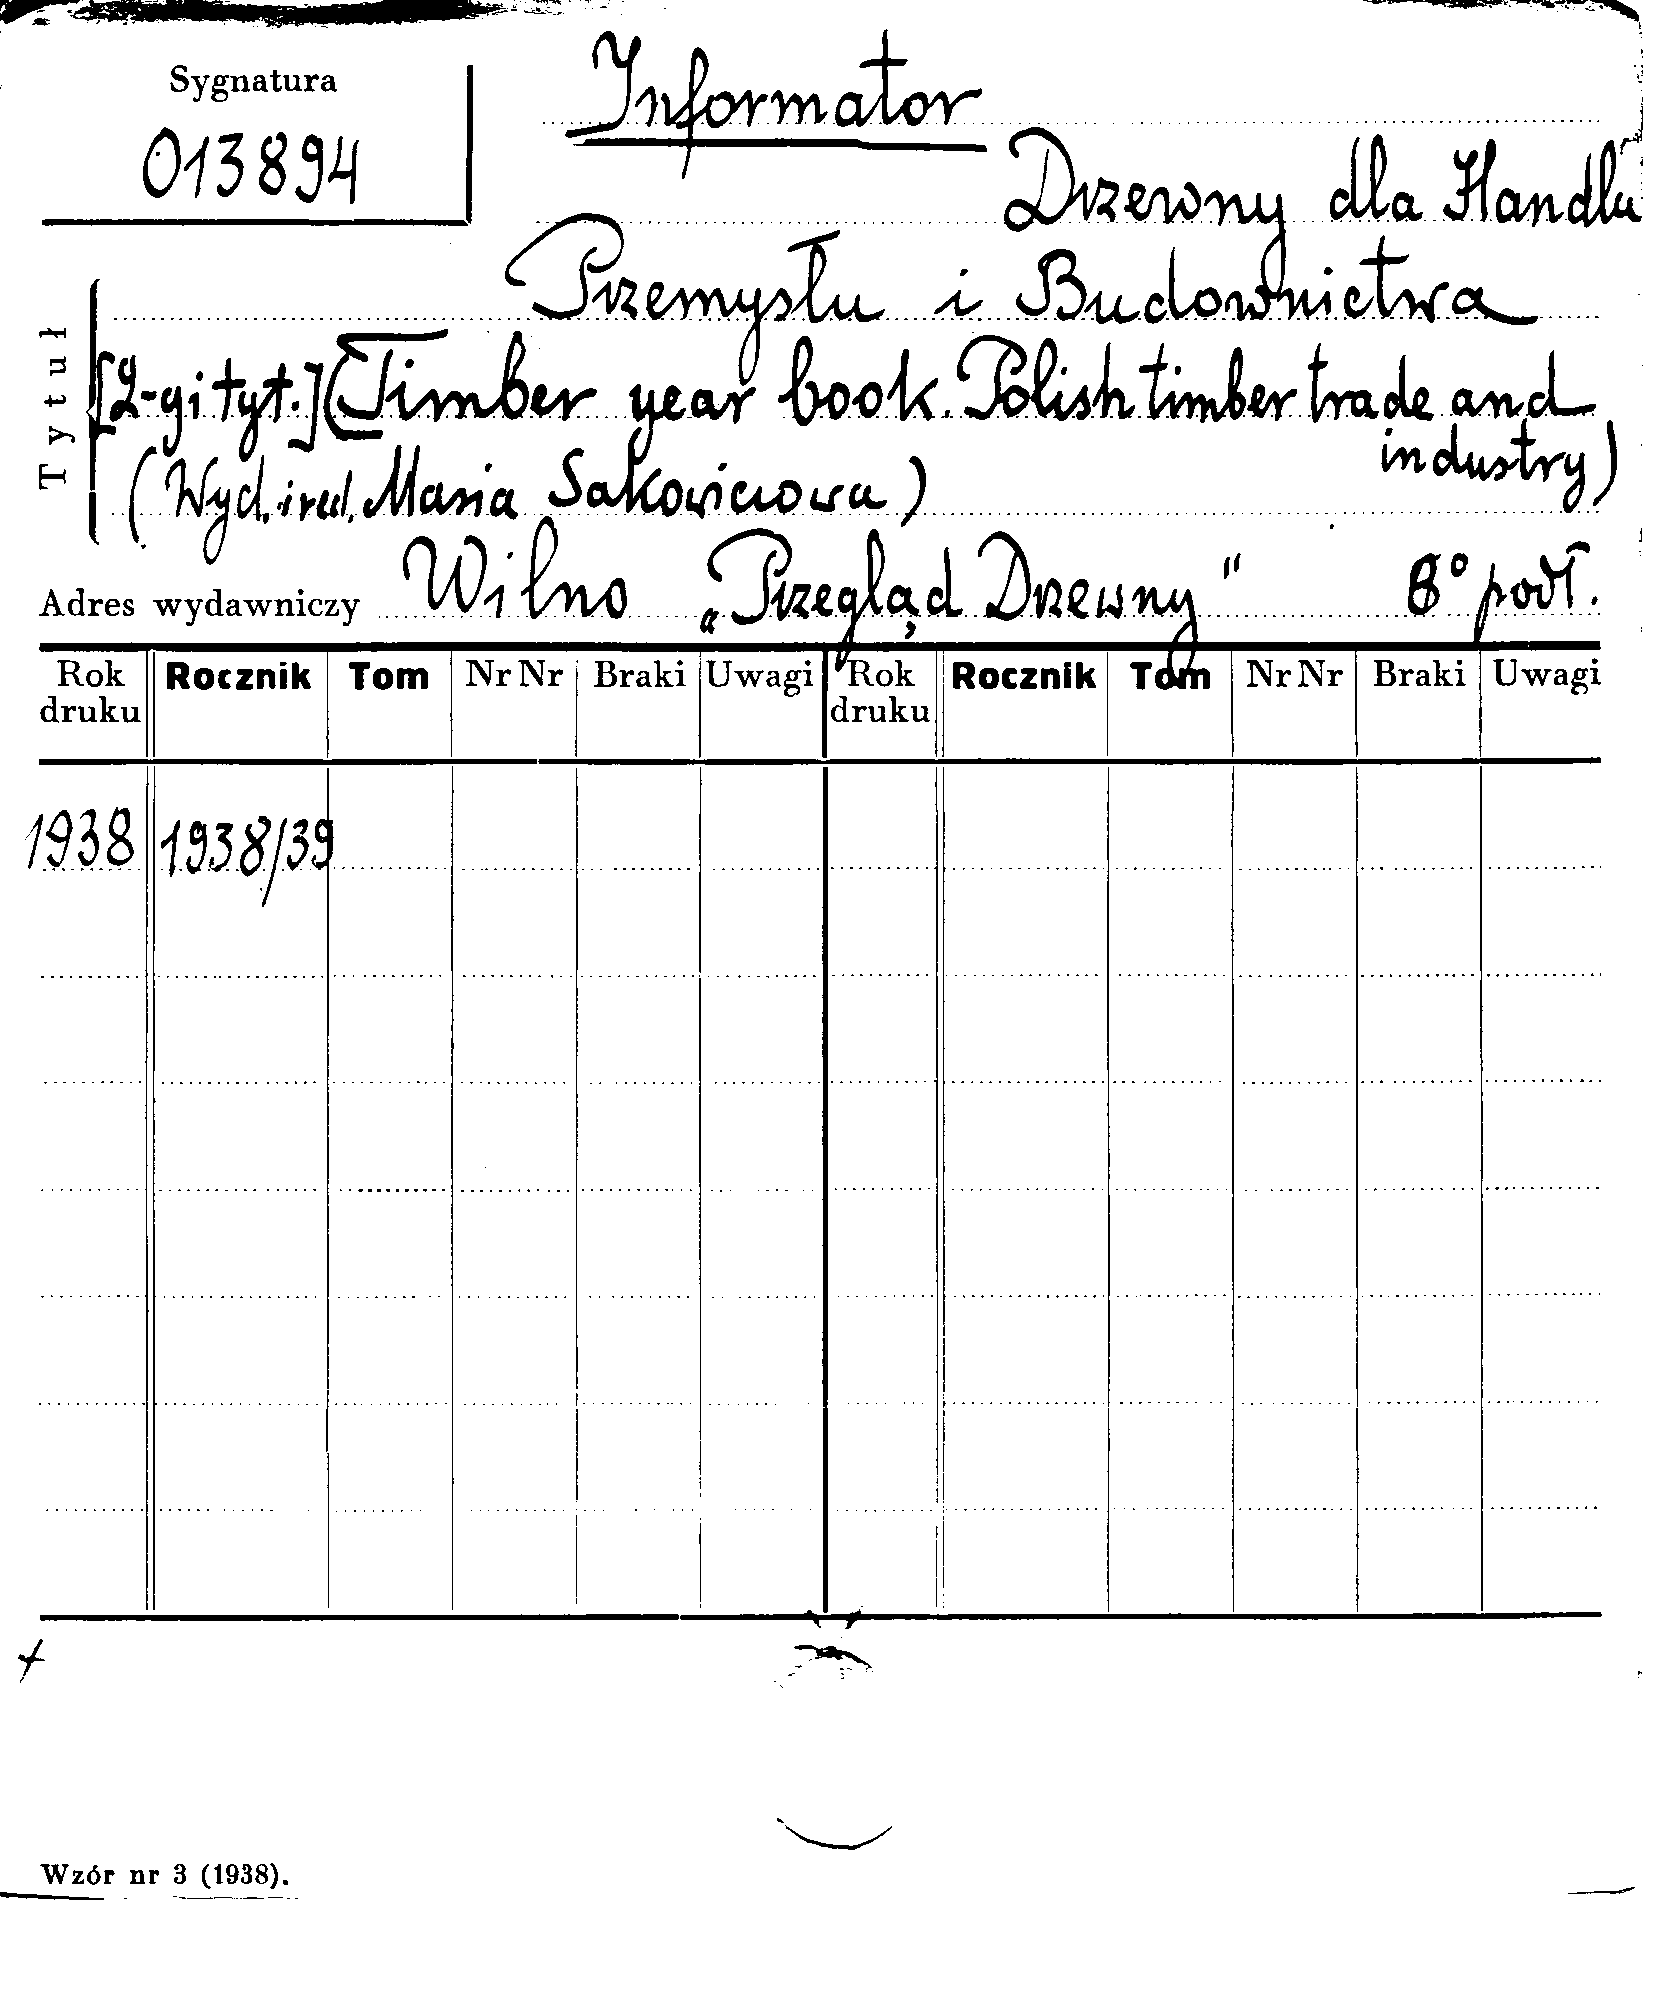 Sygnatura
013894
Informator
Drzewny dla Handlu
Przemysłu i Budownictwa
Tytuł
[2-gi tyt.] (Timber year book. Polish timber trade and
industry)
(Wyd. i red. Maria Sakowiczowa)
Adres wydawniczy Wilno „Przegląd Drzewny" 8° podł.
Rok druku Rocznik Tom Nr Nr Braki Uwagi Rok druku Rocznik Tom Nr Nr Braki Uwagi
1938 1938/39
Wzór nr 3 (1938).